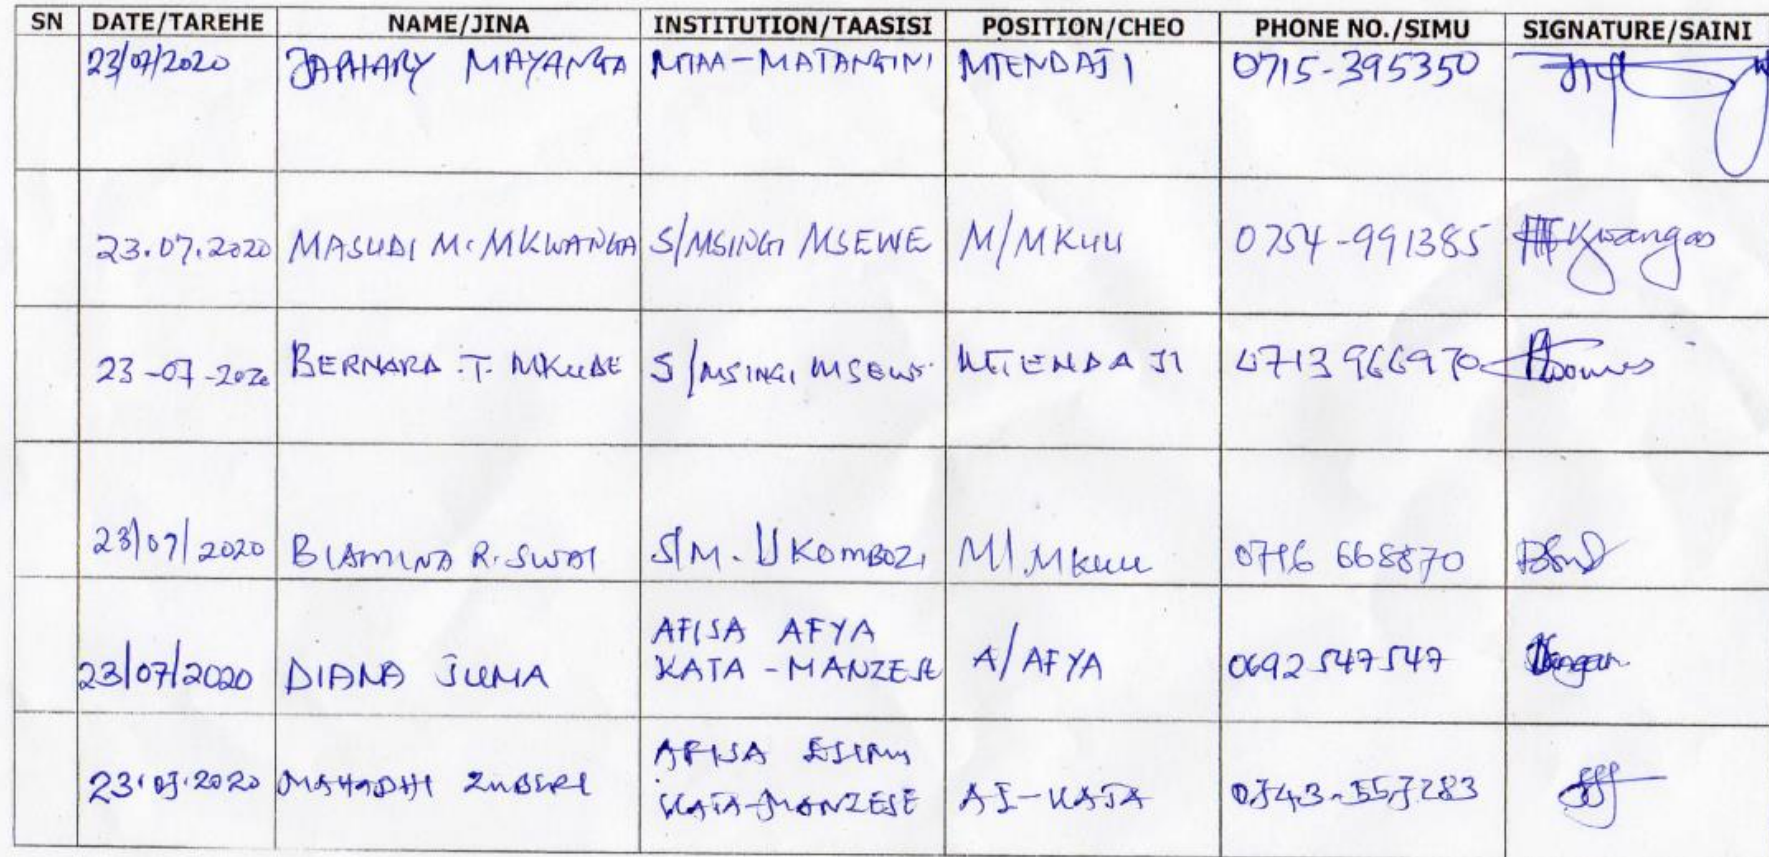 SN DATE/TAREHE NAME/JINA INSTITUTION/TAASISI POSITION/CHEO PHONE NO./SIMU SIGNATURE/SAINI
23/07/2020 JAPHARY MAYANGA MTAA-MATANGINI MTENDAJI 0715-395350
23.07.2020 MASUDI M. MKWANGA S/MSINGI MSEWE M/MKUU 0754-991385
23-07-2020 BERNARD .T. MKUDE S/MSINGI MSEWE MTENDAJI 0713 966970
23/07/2020 R. SWAI S/M. UKOMBOZI M/.MKUU 668870
AFISA AFYA
23/07/2020 DIANA JUMA KATA - MANZESE A/AFYA 0692 547547
AFISA ELIMU
23.07.2020 MAHADHI ZUBERI KATA-MANZESE KATA 0743-557283